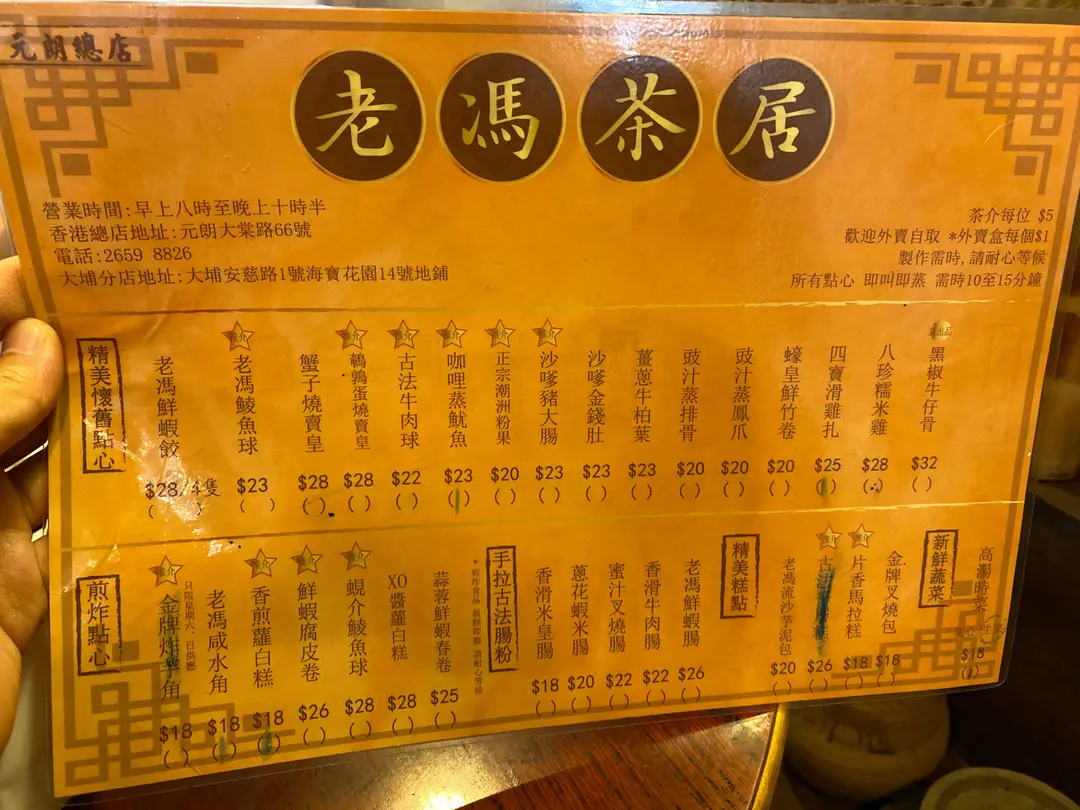 元朗總店
老馮茶居
營業時間:早上八時至晚上十時半
香港總店地址:元朗大棠路66號
電話:2659 8826
大埔分店地址:大埔安慈路1號海寶花園14號地鋪
茶介每位 $5
歡迎外賣自取 *外賣盒每個$1
製作需時,請耐心等候
所有點心 即叫即蒸 需時10至15分鐘
精美懷舊點心
老馮鮮蝦餃 $28/4隻 ( )
推介 老馮鯪魚球 $23 ( )
蟹子燒賣皇 $28 ( )
推介 鵪鶉蛋燒賣皇 $28 ( )
推介 古法牛肉球 $22 ( )
推介 咖哩蒸魷魚 $23 ( )
推介 正宗潮洲粉果 $20 ( )
推介 沙嗲豬大腸 $23 ( )
沙嗲金錢肚 $23 ( )
薑蔥牛柏葉 $23 ( )
豉汁蒸排骨 $20 ( )
豉汁蒸鳳爪 $20 ( )
蠔皇鮮竹卷 $20 ( )
四寶滑雞扎 $25 ( )
八珍糯米雞 $28 ( )
黑椒牛仔骨 $32 ( )
煎炸點心
推介 金牌炸芋角 $18 ( )
只限星期六、日供應
老馮咸水角 $18 ( )
推介 香煎蘿白糕 $18 ( )
推介 鮮蝦腐皮卷 $26 ( )
推介 蜆介鯪魚球 $28 ( )
XO醬蘿白糕 $28 ( )
蒜蓉鮮蝦春卷 $25 ( )
請耐心等候
手拉古法腸粉
香滑米皇腸 $18 ( )
蔥花蝦米腸 $20 ( )
蜜汁叉燒腸 $22 ( )
香滑牛肉腸 $22 ( )
老馮鮮蝦腸 $26 ( )
精美糕點
老馮流沙芋泥包 $20 ( )
推介 古法 糕 $26 ( )
推介 片香馬拉糕 $18 ( )
金牌叉燒包 $18 ( )
新鮮蔬菜
高湯時菜 $18 ( )